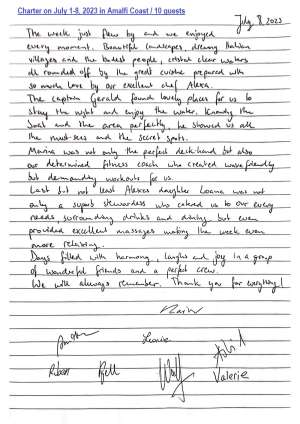 Charter on July 1-8, 2023 in Amalfi Coast / 10 guests
July 8 2023
The week just flew by and we enjoyed
every moment. Beautiful landscapes, dreamy Italian
villages and the kindest people, cristal clear waters
all rounded off by the great cuisine prepared with
so much love by our excellent chef Alexa.
The captain Gerald found lovely places for us to
stay the night and enjoy the water. Knowing the
boat and the area perfectly, he showed us all
the must-sees and the secret spots.
Marina was not only the perfect deckhand but also
our determined fitness coach who created wave friendly
but demanding workouts for us.
Last but not least Alexas daughter Loana was not
only a superb stewardess who catered us to our every
needs surrounding drinks and dining but even
provided excellent massages making the week even
more relaxing.
Days filled with harmony, laughs and joy in a group
of wonderful friends and a perfect crew.
We will always remember. Thank you for everything!
Leonie
Valerie